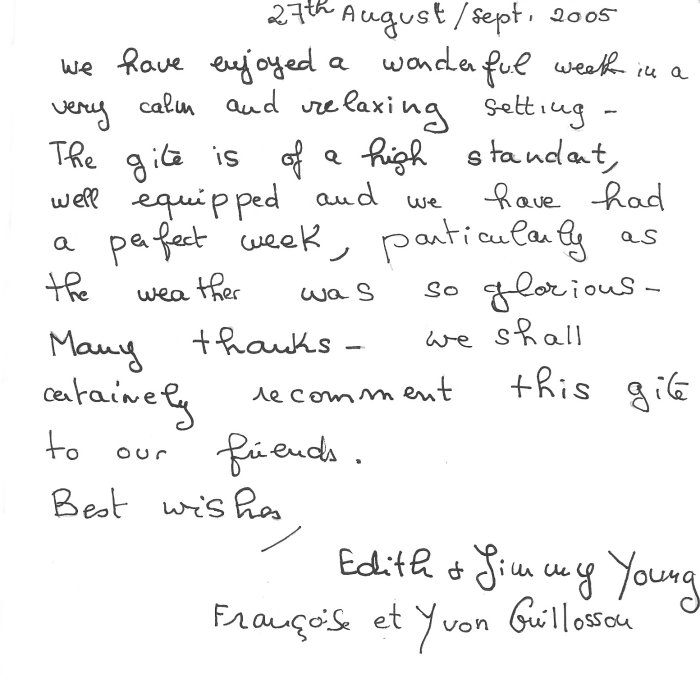 27th August/Sept. 2005
We have enjoyed a wonderful week in a
very calm and relaxing setting -
The gite is of a high standart,
well equipped and we have had
a perfect week, particularly as
the weather was so glorious -
Many thanks - we shall
certainely recomment this gite
to our friends.
Best wishes
Edith & Jimmy Young
Françoise et Yvon Guillossou